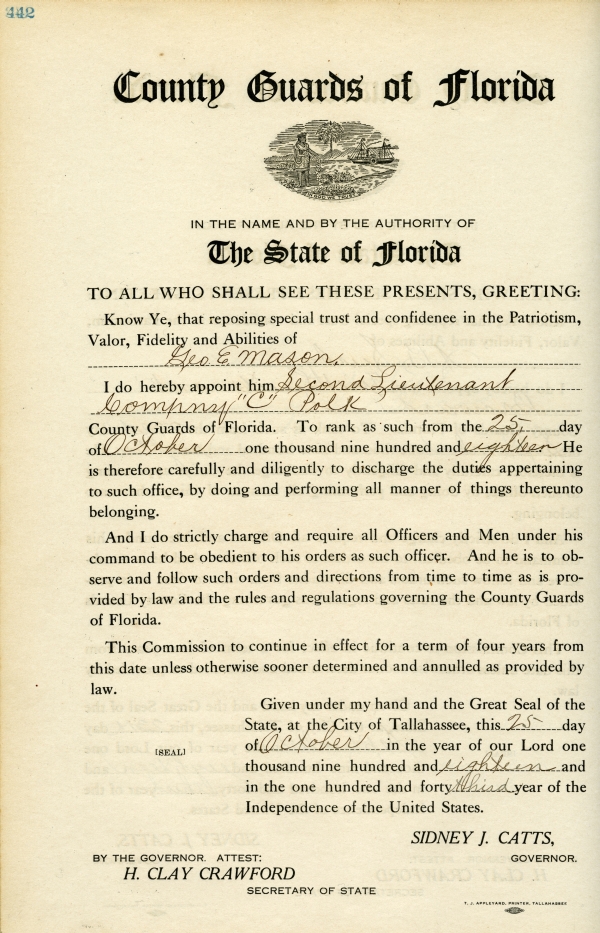 442
County Guards of Florida
IN GOD WE TRUST
IN THE NAME AND BY THE AUTHORITY OF
The State of Florida
TO ALL WHO SHALL SEE THESE PRESENTS, GREETING:
Know Ye, that reposing special trust and confidenee in the Patriotism,
Valor, Fidelity and Abilities of
Geo E Mason.
I do hereby appoint him Second Lieutenant
Compny "C" Polk
County Guards of Florida. To rank as such from the 25, day
of October one thousand nine hundred and eighteen He
is therefore carefully and diligently to discharge the duties appertaining
to such office, by doing and performing all manner of things thereunto
belonging.
And I do strictly charge and require all Officers and Men under his
command to be obedient to his orders as such officer. And he is to ob-
serve and follow such orders and directions from time to time as is pro-
vided by law and the rules and regulations governing the County Guards
of Florida.
This Commission to continue in effect for a term of four years from
this date unless otherwise sooner determined and annulled as provided by
law.
Given under my hand and the Great Seal of the
State, at the City of Tallahassee, this 25 day
[SEAL] of October in the year of our Lord one
thousand nine hundred and eighteen and
in the one hundred and forty third year of the
Independence of the United States.
SIDNEY J. CATTS,
BY THE GOVERNOR. ATTEST: GOVERNOR.
H. CLAY CRAWFORD
SECRETARY OF STATE
T. J. APPLEYARD, PRINTER, TALLAHASSEE